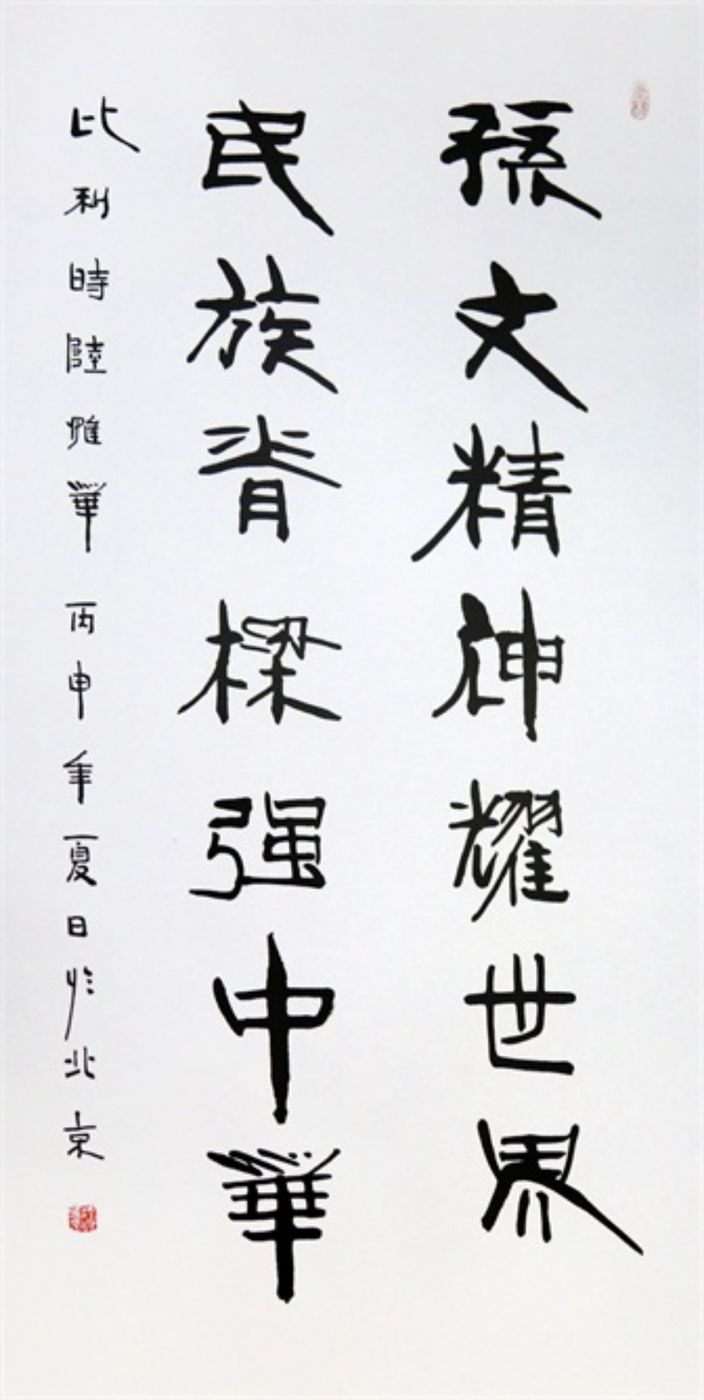 孫文精神耀世界
民族脊樑强中華
比利時陸惟華丙申年夏日於北京